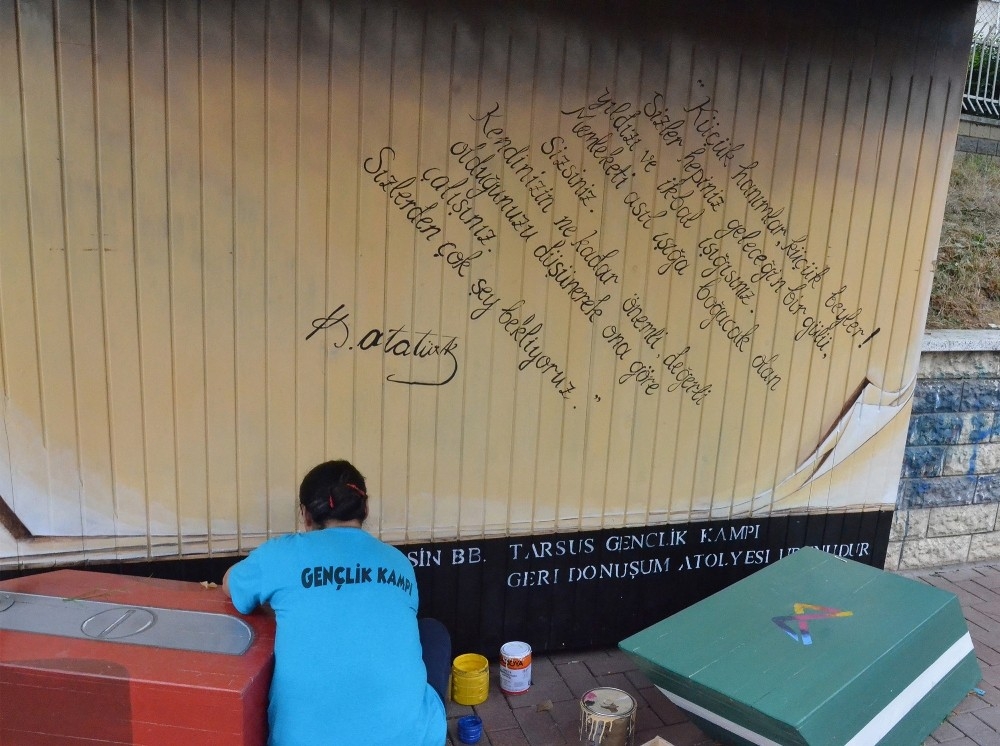 "Küçük hanımlar, küçük beyler!
Sizler hepiniz geleceğin bir gülü,
yıldızı ve ikbal ışığısınız.
Memleketi asıl ışığa boğacak olan
Sizsiniz.
Kendinizin ne kadar önemli, değerli
olduğunuzu düşünerek ona göre
çalışınız.
Sizlerden çok şey bekliyoruz."
K. atatürk
SİN BB. TARSUS GENÇLİK KAMPI
GERİ DÖNÜŞÜM ATOLYESİ ÜRÜNÜDUR
GENÇLİK KAMPI